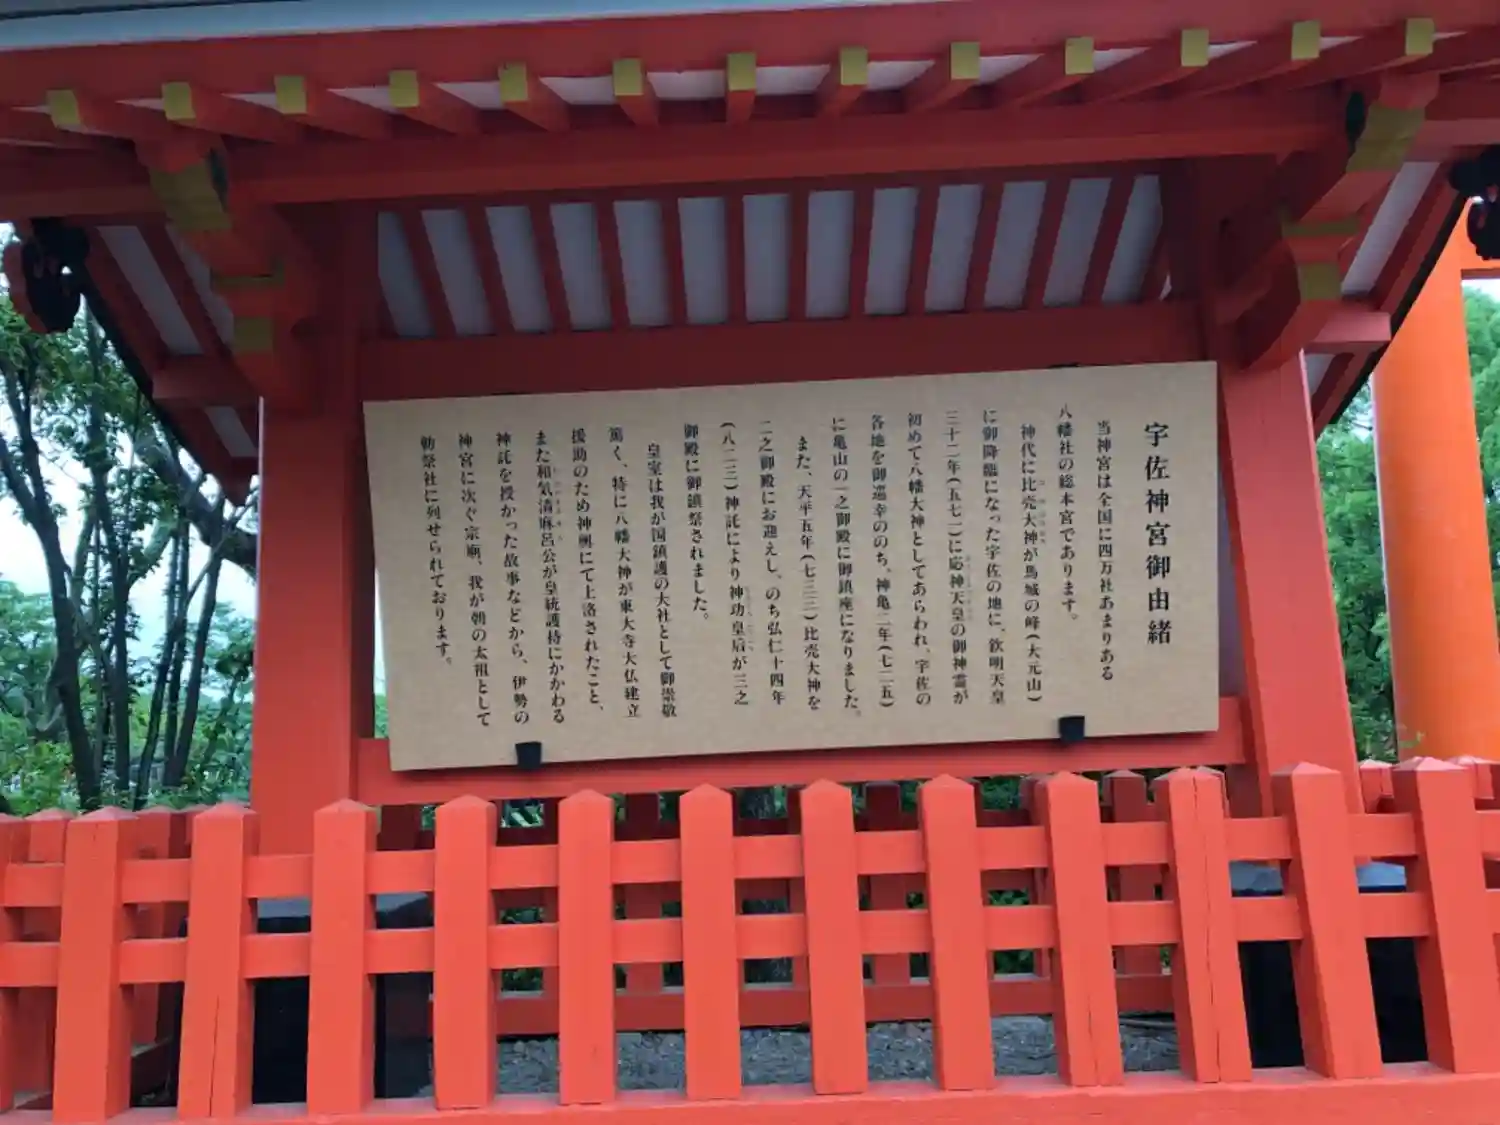 宇佐神宮御由緒
当神宮は全国に四万社あまりある
八幡社の総本宮であります。
神代に比売大神が馬城の峰(大元山)
に御降臨になった宇佐の地に、欽明天皇
三十二年(五七一)に応神天皇の御神霊が
初めて八幡大神としてあらわれ、宇佐の
各地を御巡幸ののち、神亀二年(七二五)
に亀山の一之御殿に御鎮座になりました。
また、天平五年(七三三)比売大神を
二之御殿にお迎えし、のち弘仁十四年
(八二三)神託により神功皇后が三之
御殿に御鎮祭されました。
皇室は我が国鎮護の大社として御崇敬
篤く、特に八幡大神が東大寺大仏建立
援助のため神輿にて上洛されたこと、
また和気清麻呂公が皇統護持にかかわる
神託を授かった故事などから、伊勢の
神宮に次ぐ宗廟、我が朝の太祖として
勅祭社に列せられております。